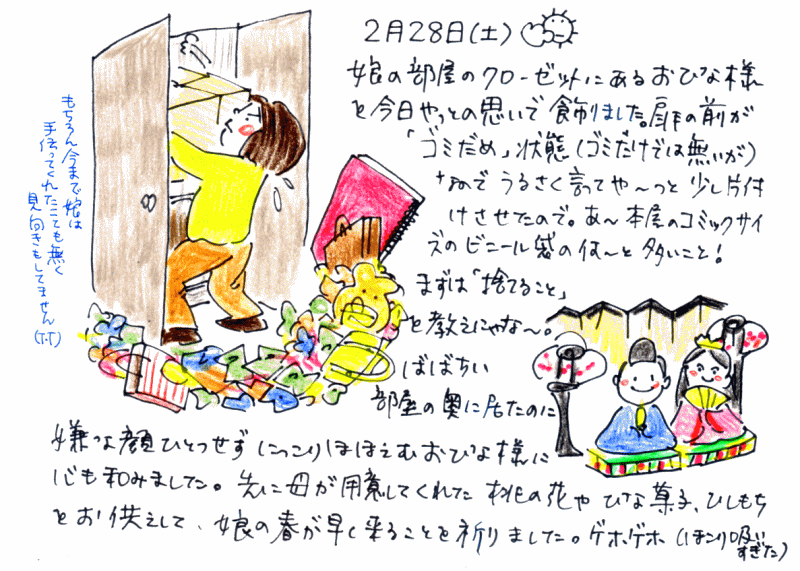 2月28日(土)
娘の部屋のクローゼットにあるおひな様
を今日やっとの思いで飾りました。扉の前が
「ゴミだめ」状態(ゴミだけでは無いが)
なので うるさく言ってや〜っと 少し片付
けさせたので。あ〜本屋のコミックサイ
ズのビニール袋の何〜と多いこと!
まずは「捨てること」
を教えにゃな〜。
ばばちい
部屋の奥に居たのに
嫌な顔ひとつせず にっこりほほえむおひな様に
心も和みました。先に母が用意してくれた 桃の花や ひな菓子、ひしもち
をお供えして、娘の春が早く来ることを祈りました。ゲホゲホ(ホコリ吸い
すぎた)
もちろん今まで娘は
手伝ってくれたことも無く
見向きもしてません
(T.T)